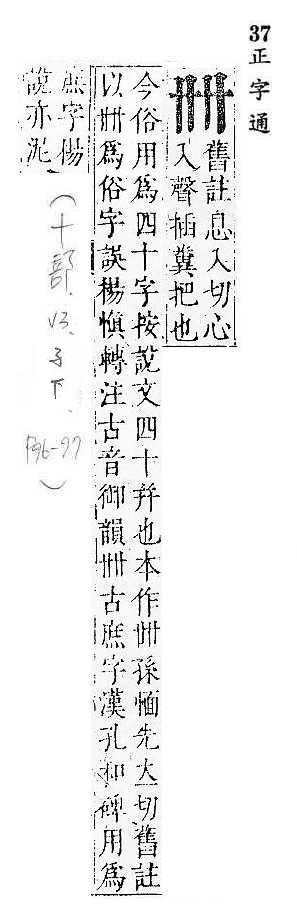 37 正字通
卌 舊註息入切心
入聲插糞把也
今俗用爲四十字按說文四十幷也本作卌孫愐先立切舊註
以卌爲俗字誤楊愼轉注古音御韻卌古庶字漢孔和碑用爲
庶字楊
說亦泥
(十部、13、子下、P96-97)